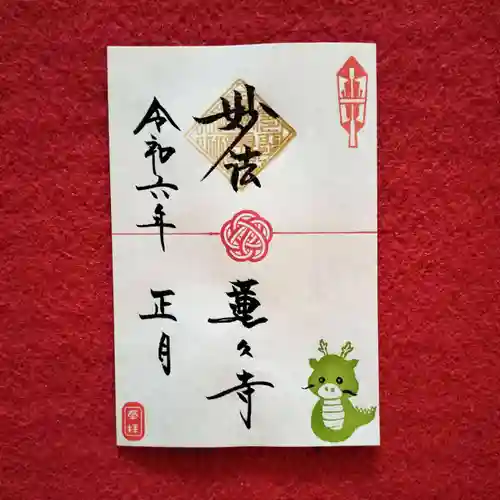 妙法
蓮久寺
令和六年 正月
奉拝